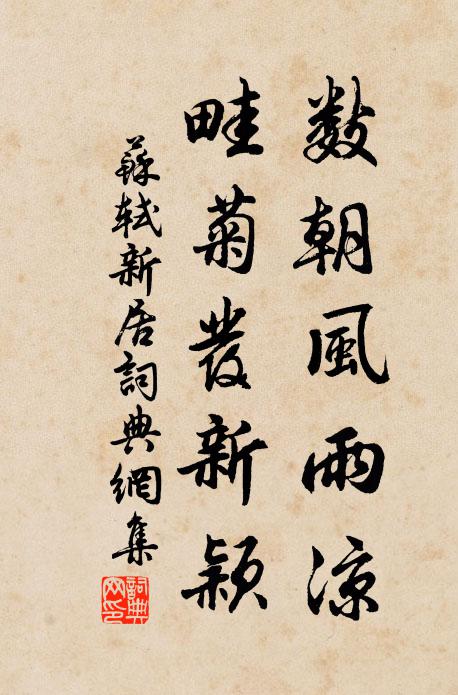 數朝風雨涼
畦菊發新穎
蘇軾新居詞典網集
詞典网印